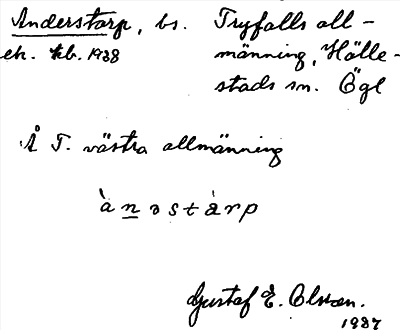 Anderstarp, bs. Tryfalls all-
ek. kb. 1938 männing, Hälle-
stads sn. Ögl
Å T. västra allmänning
ànəstàrp
Gustaf E. Olsson.
1937